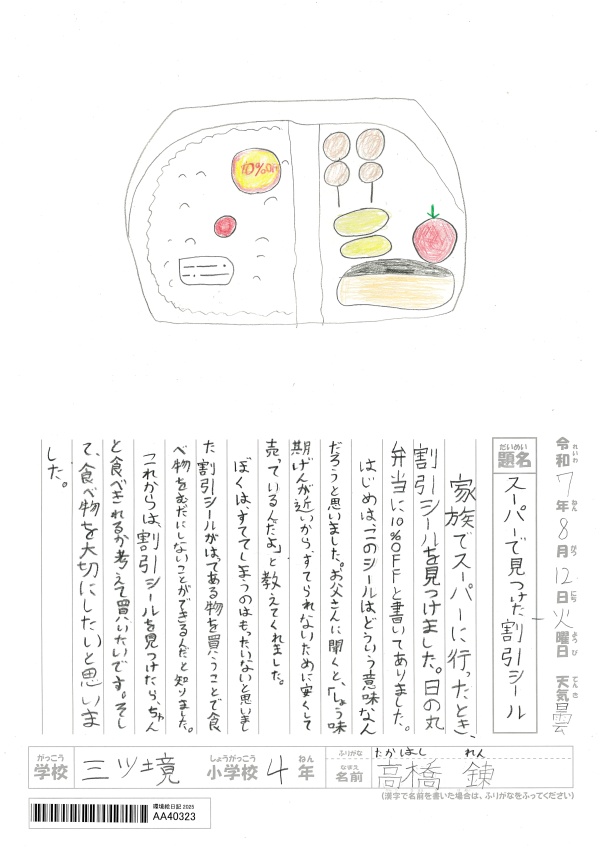 10%OFF
令和7年8月12日火曜日 天気曇
れいわ ねん がつ にち ようび てんき
だいめい
題名 スーパーで見つけた割引シール
家族でスーパーに行ったとき、
割引シールを見つけました。日の丸
弁当に10%OFFと書いてありました。
はじめは、このシールはどういう意味なん
だろうと思いました。お父さんに聞くと、「しょう味
期げんが近いから、すてられないために安くして
売っているんだよ」と教えてくれました。
ぼくは、すててしまうのはもったいないと思いまし
た。割引シールがはってある物を買うことで食
べ物をむだにしないことができるんだと知りました。
これからは、割引シールを見つけたら、ちゃん
と食べきれるか考えて買いたいです。そし
て、食べ物を大切にしたいと思いま
した。
がっこう しょうがっこう ねん ふりがな たかはし れん
学校 三ツ境 小学校 4年 なまえ 名前 高橋 錬
(漢字で名前を書いた場合は、ふりがなをふってください)
環境絵日記 2025
AA40323